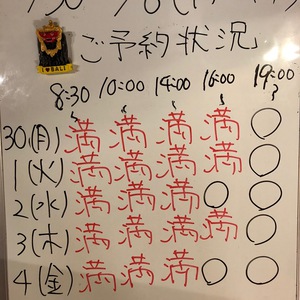 ご予約状況
I ♥ BALI
8:30 10:00 14:00 16:00 19:00
30(月) 満 満 満 満 ○
1(火) 満 満 満 満 ○
2(水) 満 満 満 ○ ○
3(木) 満 満 満 満 ○
4(金) 満 満 満 ○ ○